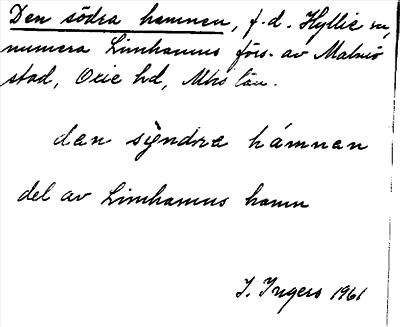 Den södra hamnen, f.d. Hyllie sn,
numera Limhamns förs. av Malmö
stad, Oxie hd, Mhs län.
dan sỳndra hámnan
del av Limhamns hamn
I. Ingers 1961